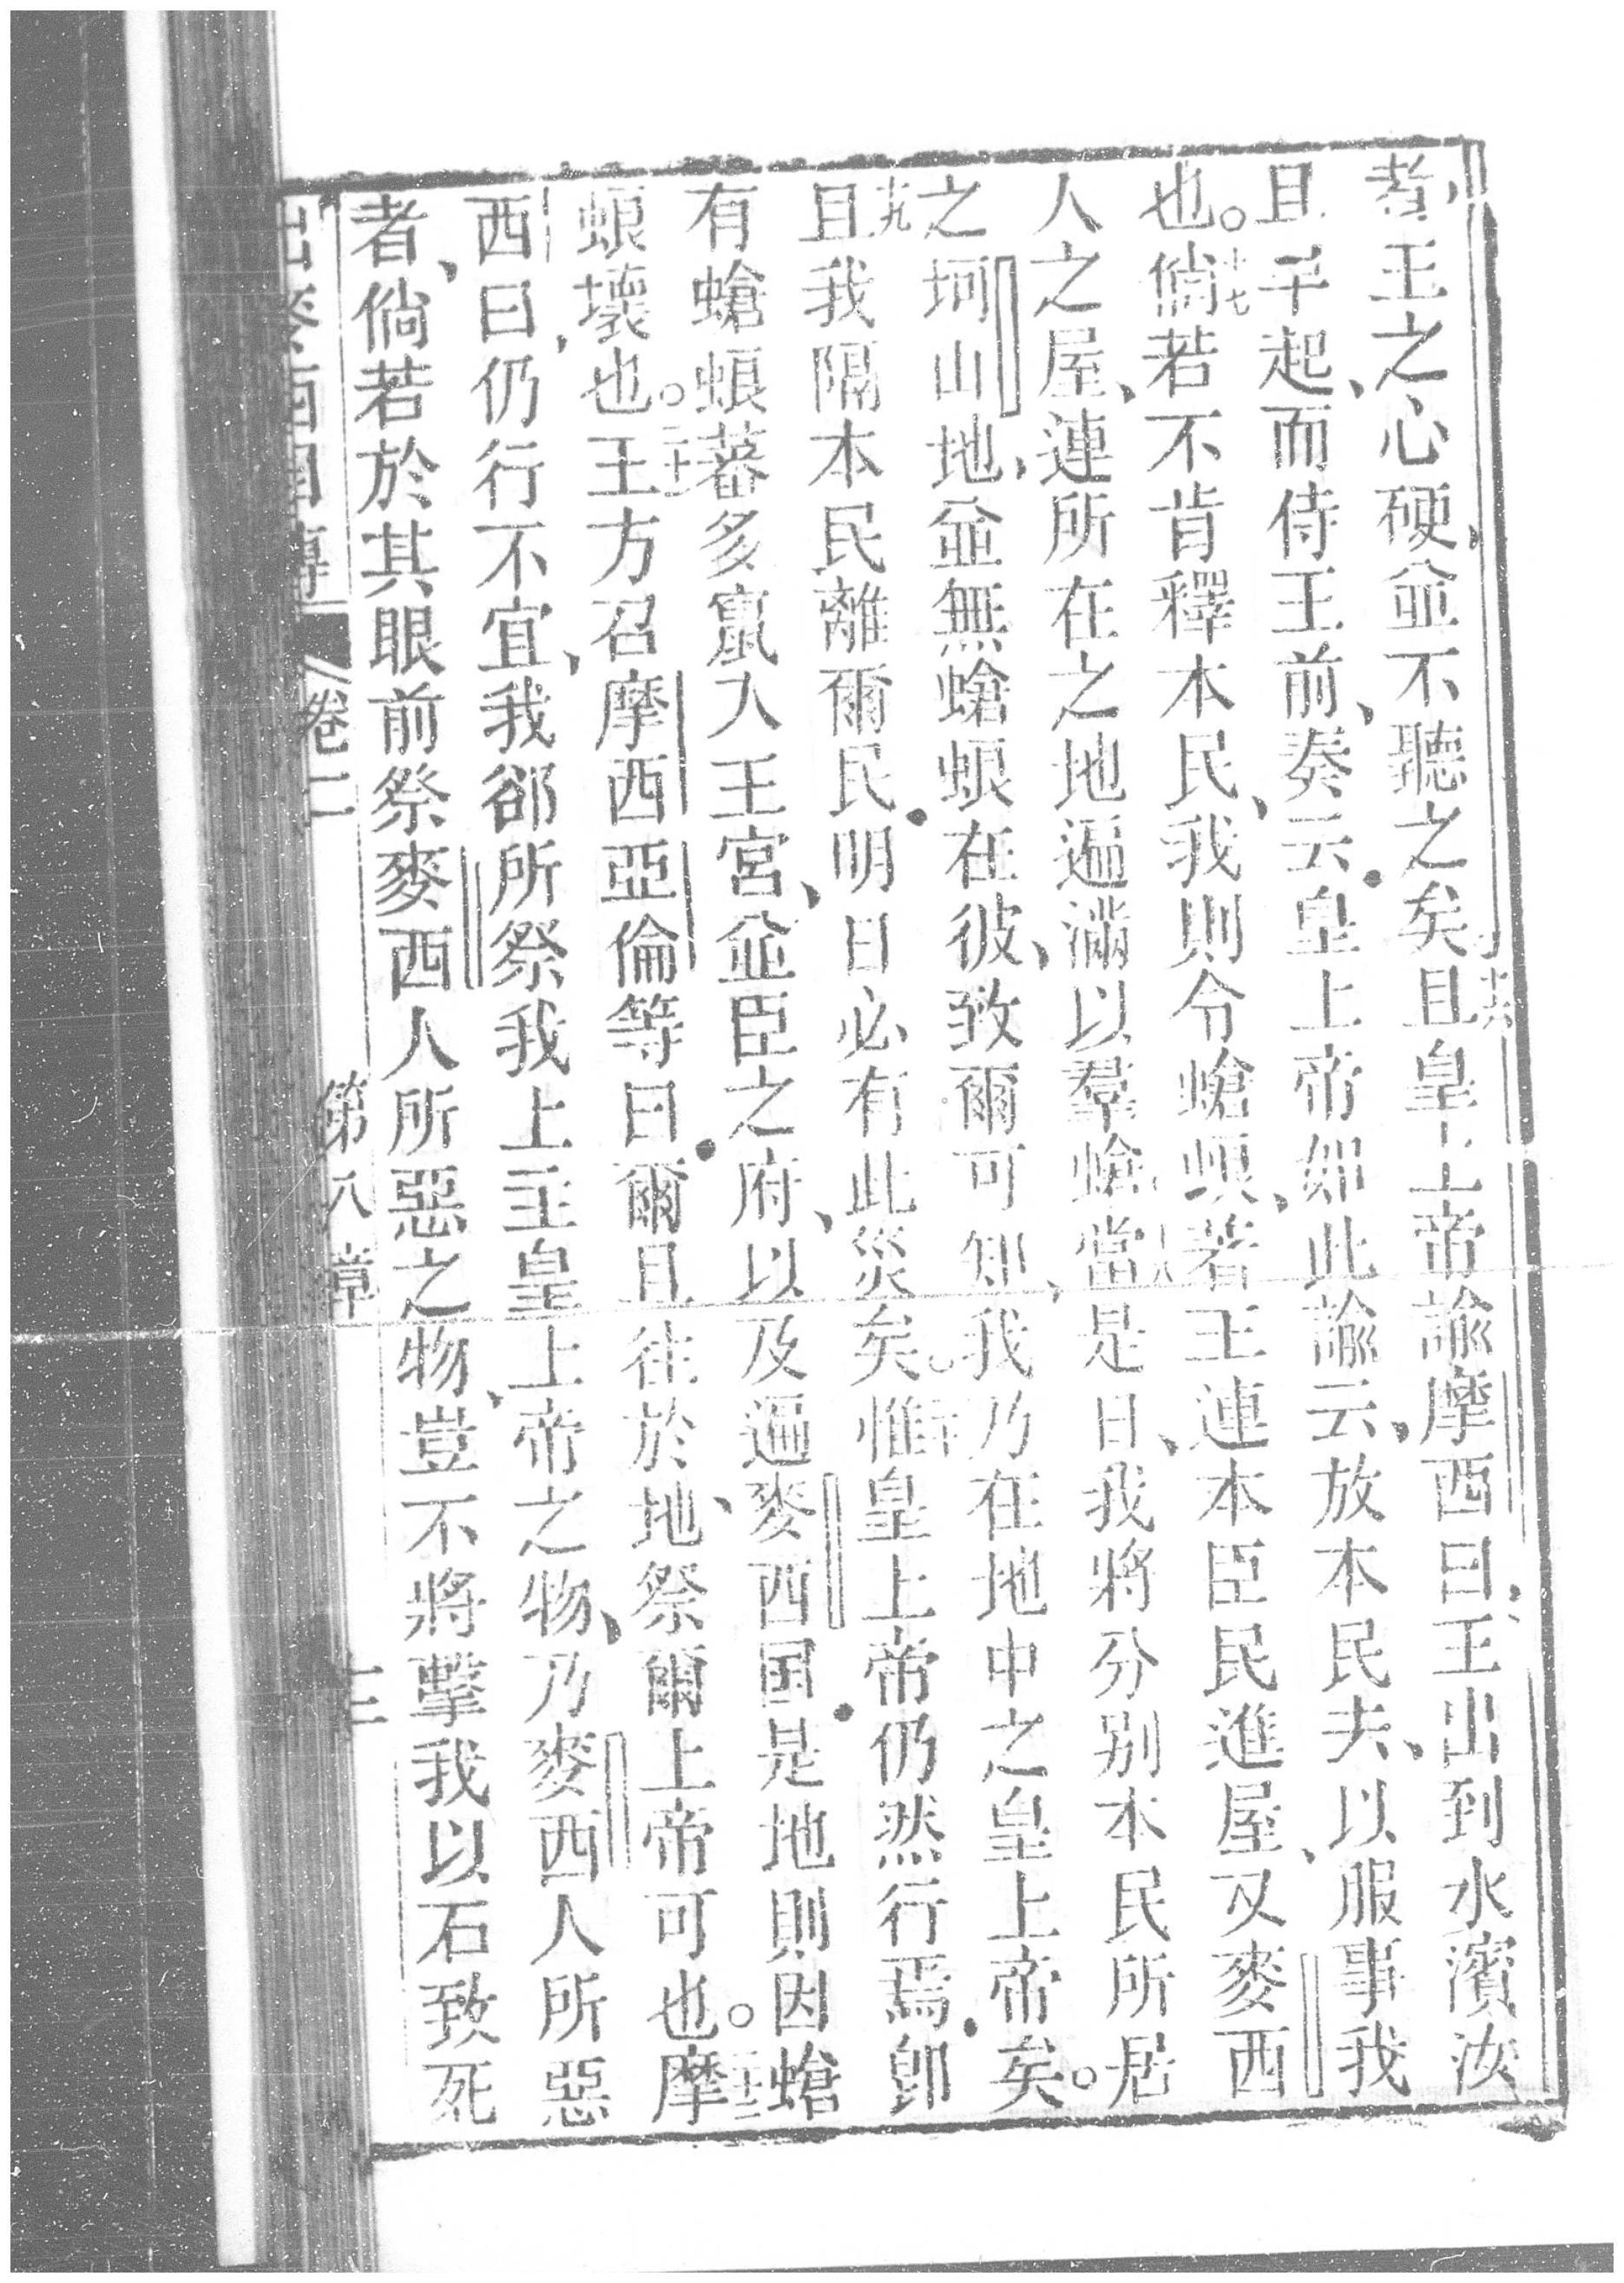 者、王之心硬、並不聽之矣。十六且皇上帝諭摩西曰、王出到水濱、汝
且早起、而侍王前、奏云・皇上帝如此諭云、放本民去、以服事我
也。十七倘若不肯釋本民、我則令螥蜋、著王連本臣民進屋、又麥西
人之屋、連所在之地遍滿以羣螥當是日、我將分別本民所居
之坷山地、並無螥蜋在彼、致爾可知、我乃在地中之皇上帝矣。
十九且我隔本民離爾民・明日必有此災矣。二十惟皇上帝仍然行焉・卽
有螥蜋蕃多寘入王宮、並臣之府、以及遍麥西国・是地則因螥
蜋壞也。二十一王方召摩西亞倫等曰・爾且往於地、祭爾上帝可也。二十二摩
西曰、仍行不宜、我郤所祭我上主皇上帝之物、乃麥西人所惡
者、倘若於其眼前祭麥西人所惡之物、豈不將擊我以石致死
出麥西國傳 卷二 第八章 十三